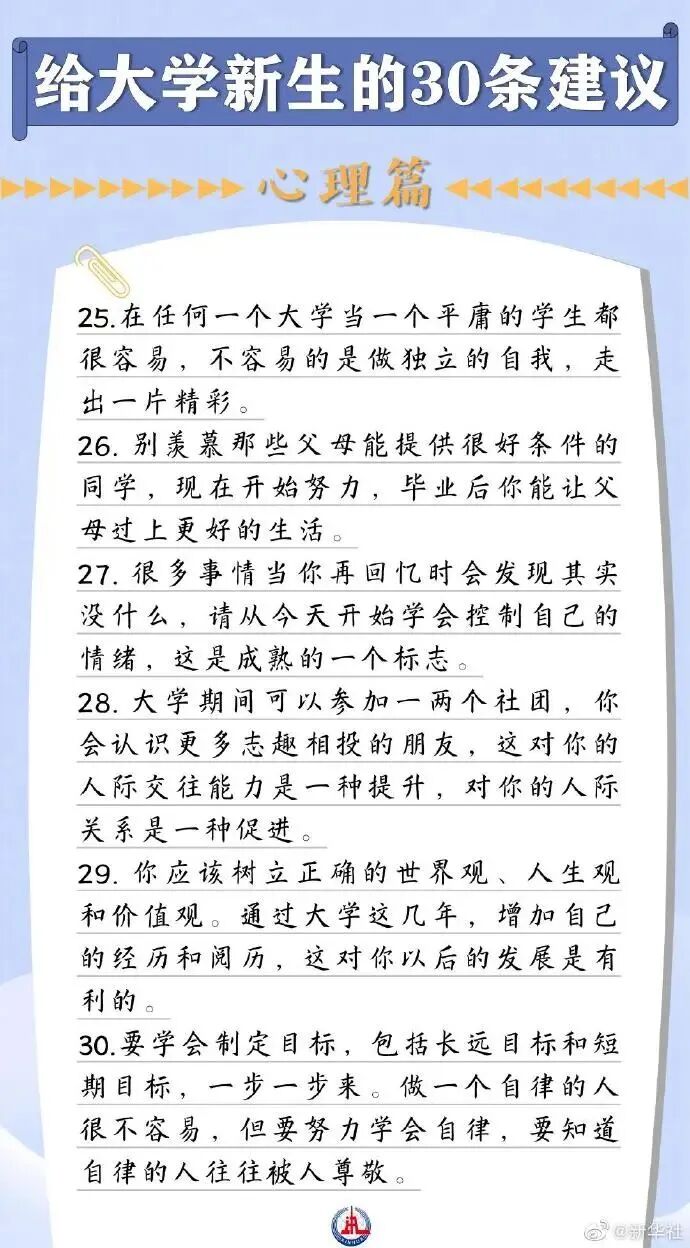 给大学新生的30条建议
心理篇
25.在任何一个大学当一个平庸的学生都
很容易，不容易的是做独立的自我，走
出一片精彩。
26. 别羡慕那些父母能提供很好条件的
同学，现在开始努力，毕业后你能让父
母过上更好的生活。
27. 很多事情当你再回忆时会发现其实
没什么，请从今天开始学会控制自己的
情绪，这是成熟的一个标志。
28. 大学期间可以参加一两个社团，你
会认识更多志趣相投的朋友，这对你的
人际交往能力是一种提升，对你的人际
关系是一种促进。
29. 你应该树立正确的世界观、人生观
和价值观。通过大学这几年，增加自己
的经历和阅历，这对你以后的发展是有
利的。
30.要学会制定目标，包括长远目标和短
期目标，一步一步来。做一个自律的人
很不容易，但要努力学会自律，要知道
自律的人往往被人尊敬。
@新华社